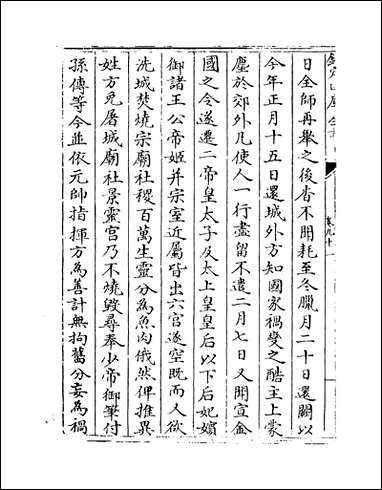 欽定四庫全書
卷九十一
日全師再舉之後杳不聞耗至冬臘月二十日還闕以
今年正月十五日還城外方知國家禍變之酷主上蒙
塵於郊外凡使人一行盡留不遣二月七日又聞宣金
國之令遂遷二帝皇太子及太上皇皇后以下后妃嬪
御諸王公帝姬并宗室近屬皆出六宫遂空既而人欲
洗城焚燒宗廟社稷百萬生靈分為魚肉俄然俾推異
姓方免屠城廟社景靈宫乃不燒毀尋奉少帝御筆付
孫傅等令並依元帥指揮方為善計無拘舊分妄為禍